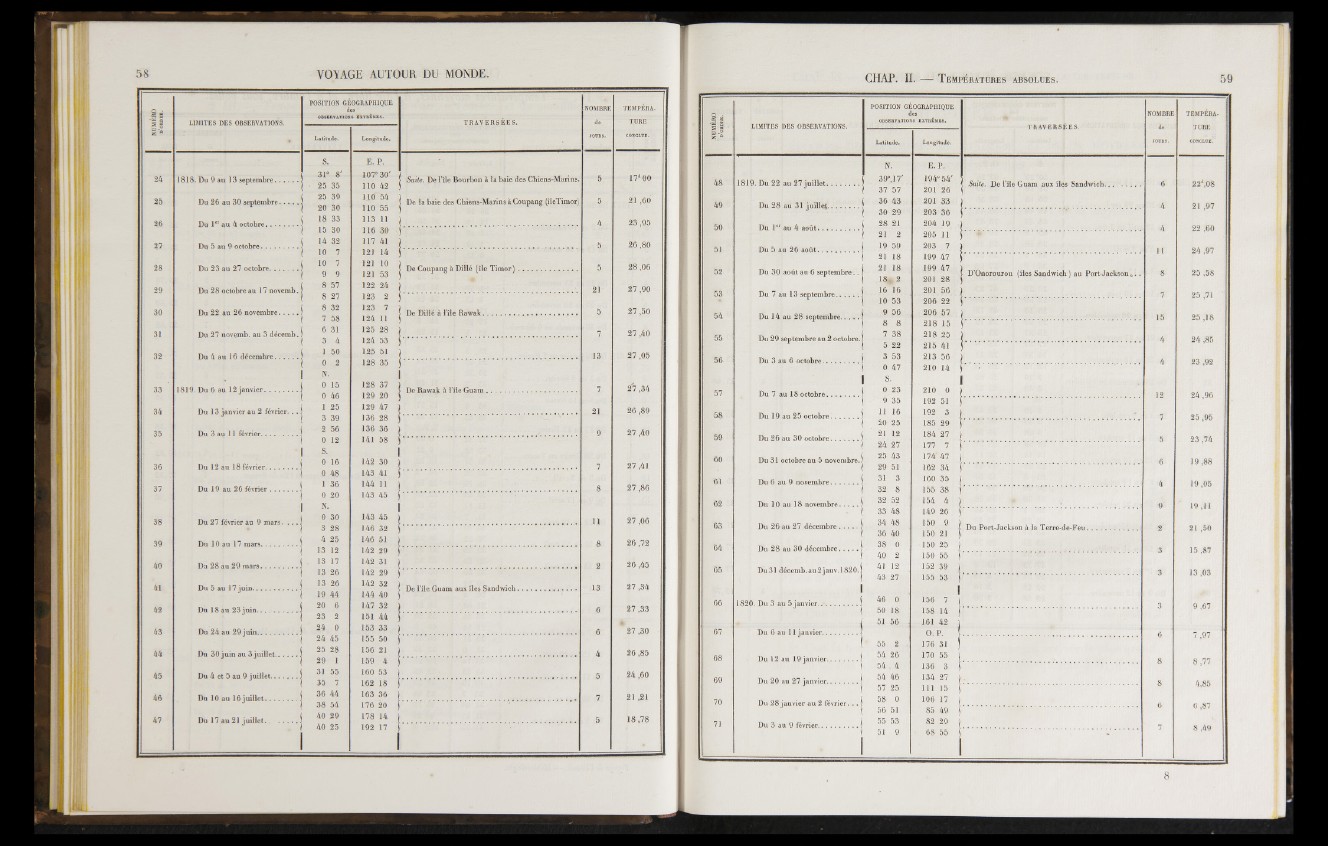 58
VOYAGE AUTOUR DU MONDE.
NUMÉRO D'ORDRE.
LIMITES DES OBSERVATIONS.
POSITION GÉOGRAPHIQUE
des
OBSERVATIONS EXTRÊMES.
Latitude.
Longitude.
TRAVERSÉES.
NOMBRE
de
JOURS.
TEMPÉRA-
TURE
CONCLUE.
S. E. P.
24 1818. Du 9 au 13 septembre....... 31° 8' 107° 30' Suite. De l'île Bourbon à la baie des Chiens-Marins. 5 17° 00
25 35 110 42
25 Du 26 au 30 septembre..... 25 39 110 54 De la baie des Chiens-Marins à Coupang (île Timor) 5 21 ,60
20 30 110 55
26 Du 1er au 4 octobre........ 18 33 115 11 4 25 ,05
15 30 116 30
27 Du 5 au 9 octobre......... 14 32 117 41 5 26 ,80
10 7 121 14
28 Du 23 au 27 octobre....... 10 7 121 10 De Coupang à Dillé (île Timor)............... 5 28 ,06
9 9 121 53
29 Du 28 octobre au 17 novemb. 8 57 122 24 21 27 ,90
8 27 123 2
30 Du 22 au 26 novembre..... 8 32 123 7 De Dillé à l'île Rawak........................ 5 27 ,50
7 58 124 11
31 Du 27 novemb. au 3 décemb. 6 31 125 28 7 27 ,40
3 4 124 53
32 Du 4 au 16 décembre...... 1 50 125 51 13 27 ,05
0 2 128 35
N.
33 1819. Du 6 au 12 janvier......... 0 15 128 37 De Rawak à l'île Guam....................... 7 27 ,34
0 46 129 20
34 Du 13 janvier au 2 février... 1 25 129 47 21 26 ,89
3 39 136 28
35 Du 3 au 11 février......... 2 56 136 36 9 27 ,40
0 12 141 58
S.
36 Du 12 au 18 février........ 0 16 142 30 7 27 ,41
0 48 143 41
37 Du 19 au 26 février....... 1 36 144 11 8 27 ,86
0 20 143 45
N.
38 Du 27 février au 9 mars.... 0 30 143 45 11 27 ,06
3 28 146 32
39 Du 10 au 17 mars......... 4 25 146 51 8 26 ,72
13 12 142 29
40 Du 28 au 29 mars......... 13 17 142 31 2 26 ,45
13 26 142 29
41 Du 5 au 17 juin........... 13 26 142 32 De l'île Guam aux îles Sandwich.............. 13 27 ,34
19 44 144 40
42 Du 18 au 23 juin.......... 20 6 147 32 6 27 ,33
23 2 151 44
43 Du 24 au 29 juin.......... 24 0 153 33 6 27 ,30
24 45 155 50
44 Du 30 juin au 3 juillet...... 25 28 156 21 4 26 ,85
29 1 159 4
45 Du 4 et 5 au 9 juillet....... 31 55 160 53 5 24 ,60
35 7 162 18
46 Du 10 au 16 juillet........ 36 44 163 36 7 21 ,21
38 54 176 20
47 Du 17 au 21 juillet........ 40 29 178 14 5 18 ,78
40 25 192 17
CHAP. II. — TEMPÉRATURES ABSOLUES.
59
NUMÉRO D'ORDRE.
LIMITES DES OBSERVATIONS.
POSITION GÉOGRAPHIQUE
des
OBSERVATIONS EXTRÊMES.
Latitude.
Longitude.
TRAVERSÉES.
NOMBRE
de
JOURS.
TEMPÉRA-
TURE
CONCLUE.
N. E. P.
48 1819. Du 22 au 27 juillet......... 39° 17' 194° 54' Suite. De l'île Guam aux îles Sandwich......... 6 22°,08
37 57 201 26
49 Du 28 au 31 juillet........ 36 43 201 33 4 21 ,97
30 29 203 36
50 Du 1er au 4 août.......... 28 21 204 19 4 22 ,60
21 2 205 11
51 Du 5 au 26 août.......... 19 59 203 7 11 24 ,97
21 18 199 47
52 Du 30 août au 6 septembre.. 21 18 199 47 D'Onorourou (îles Sandwich) au Port-Jackson... 8 25 ,58
18 2 201 28
53 Du 7 au 13 septembre...... 16 16 201 56 7 25 ,71
10 53 206 22
54 Du 14 au 28 septembre..... 9 56 206 57 15 25 ,18
8 8 218 15
55 Du 29 septembre au 2 octobre. 7 38 218 25 4 24 ,85
5 22 215 41
56 Du 3 au 6 octobre......... 3 53 213 56 4 23 ,92
0 47 210 14
S.
57 Du 7 au 18 octobre........ 0 23 210 0 12 24 ,96
9 35 192 51
58 Du 19 au 25 octobre....... 11 16 192 3 7 25 ,96
20 25 185 29
59 Du 26 au 30 octobre....... 21 12 184 27 5 23 ,74
24 27 177 7
60 Du 31 octobre au 5 novembre. 25 43 174 47 6 19 ,88
29 51 162 34
61 Du 6 au 9 novembre....... 31 3 160 35 4 19 ,05
32 8 155 38
62 Du 10 au 18 novembre..... 32 52 154 4 9 19 ,11
33 48 149 26
63 Du 26 au 27 décembre..... 34 48 150 9 Du Port-Jackson à la Terre-de-Feu............ 2 21 ,50
36 40 150 21
64 Du 28 au 30 décembre..... 38 0 150 25 3 15 ,87
40 2 150 55
65 Du 31 décemb. au 2 janv. 1820. 41 12 152 39 3 13 ,03
43 27 155 53
66 1820. Du 3 au 5 janvier.......... 46 0 156 7 3 9 ,67
50 18 158 14
67 Du 6 au 11 janvier......... 51 56 161 42 6 7 ,97
O. P.
55 2 176 31
68 Du 12 au 19 janvier........ 54 26 170 55 8 8 ,77
54 4 136 3
69 Du 20 au 27 janvier........ 54 46 134 27 8 4,85
57 25 111 15
70 Du 28 janvier au 2 février... 58 0 106 17 6 6 ,87
56 51 85 49
71 Du 3 au 9 février.......... 55 53 82 29 7 8 ,49
51 9 68 55
8